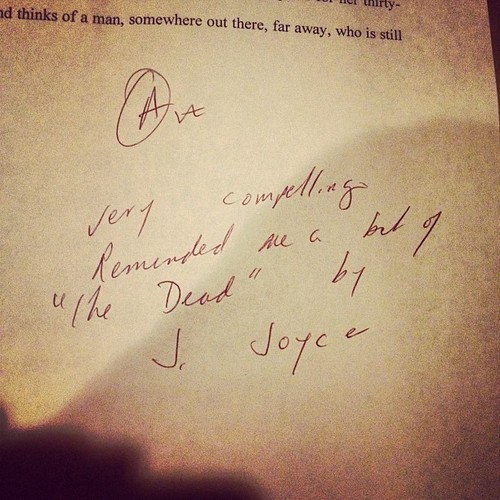 for her thirty-
nd thinks of a man, somewhere out there, far away, who is still
A
very compelling
Reminded me a bit of
"The Dead" by
J. Joyce